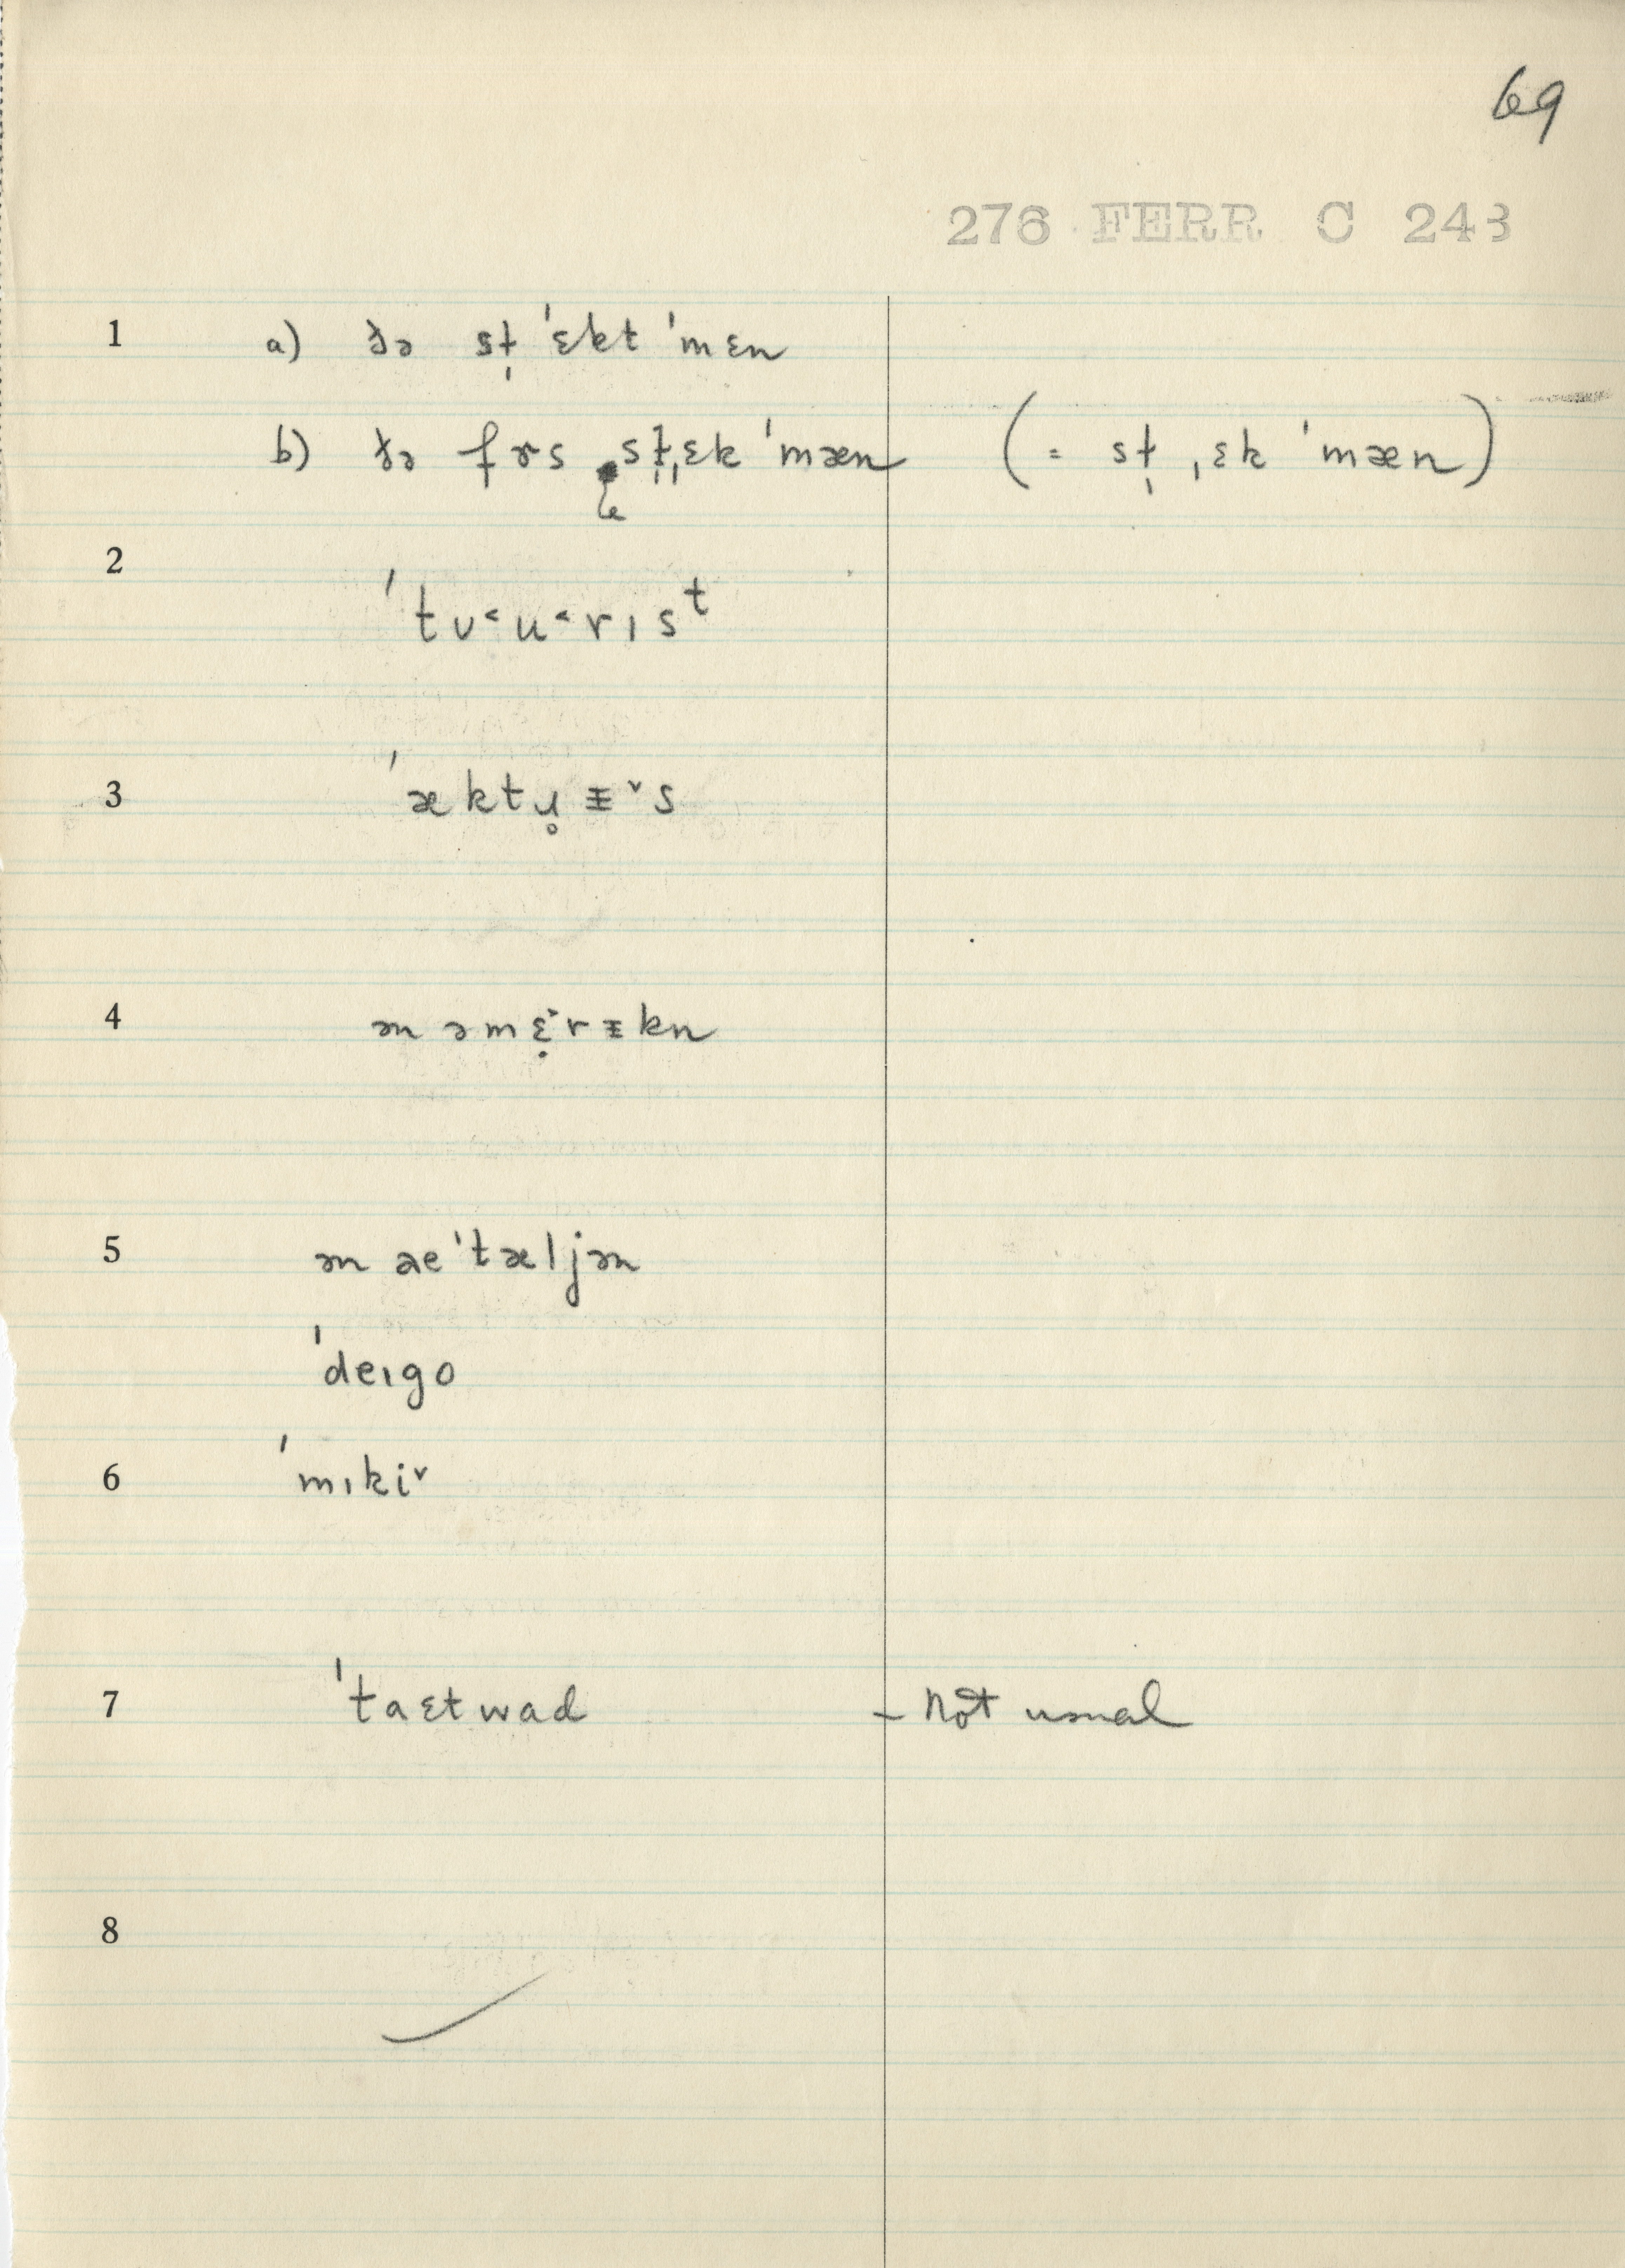 69
276 FERR C 243
1 a) ðə sɫ̩ ˈɛkt ˈmɛn
b) ðə fɤs sɫ̩ˌɛk ˈmæn (= sɫ̩ ˌɛk ˈmæn)
2 ˈtʊ˂u˂rɪsᵗ
3 ˈæktɥ̥ᵻ˅s
4 ən əmɛ̣˅rᵻkn
5 ən aeˈtæljən
ˈdeɪgo
6 ˈmɪki˅
7 ˈtaɛtwad – Not usual
8